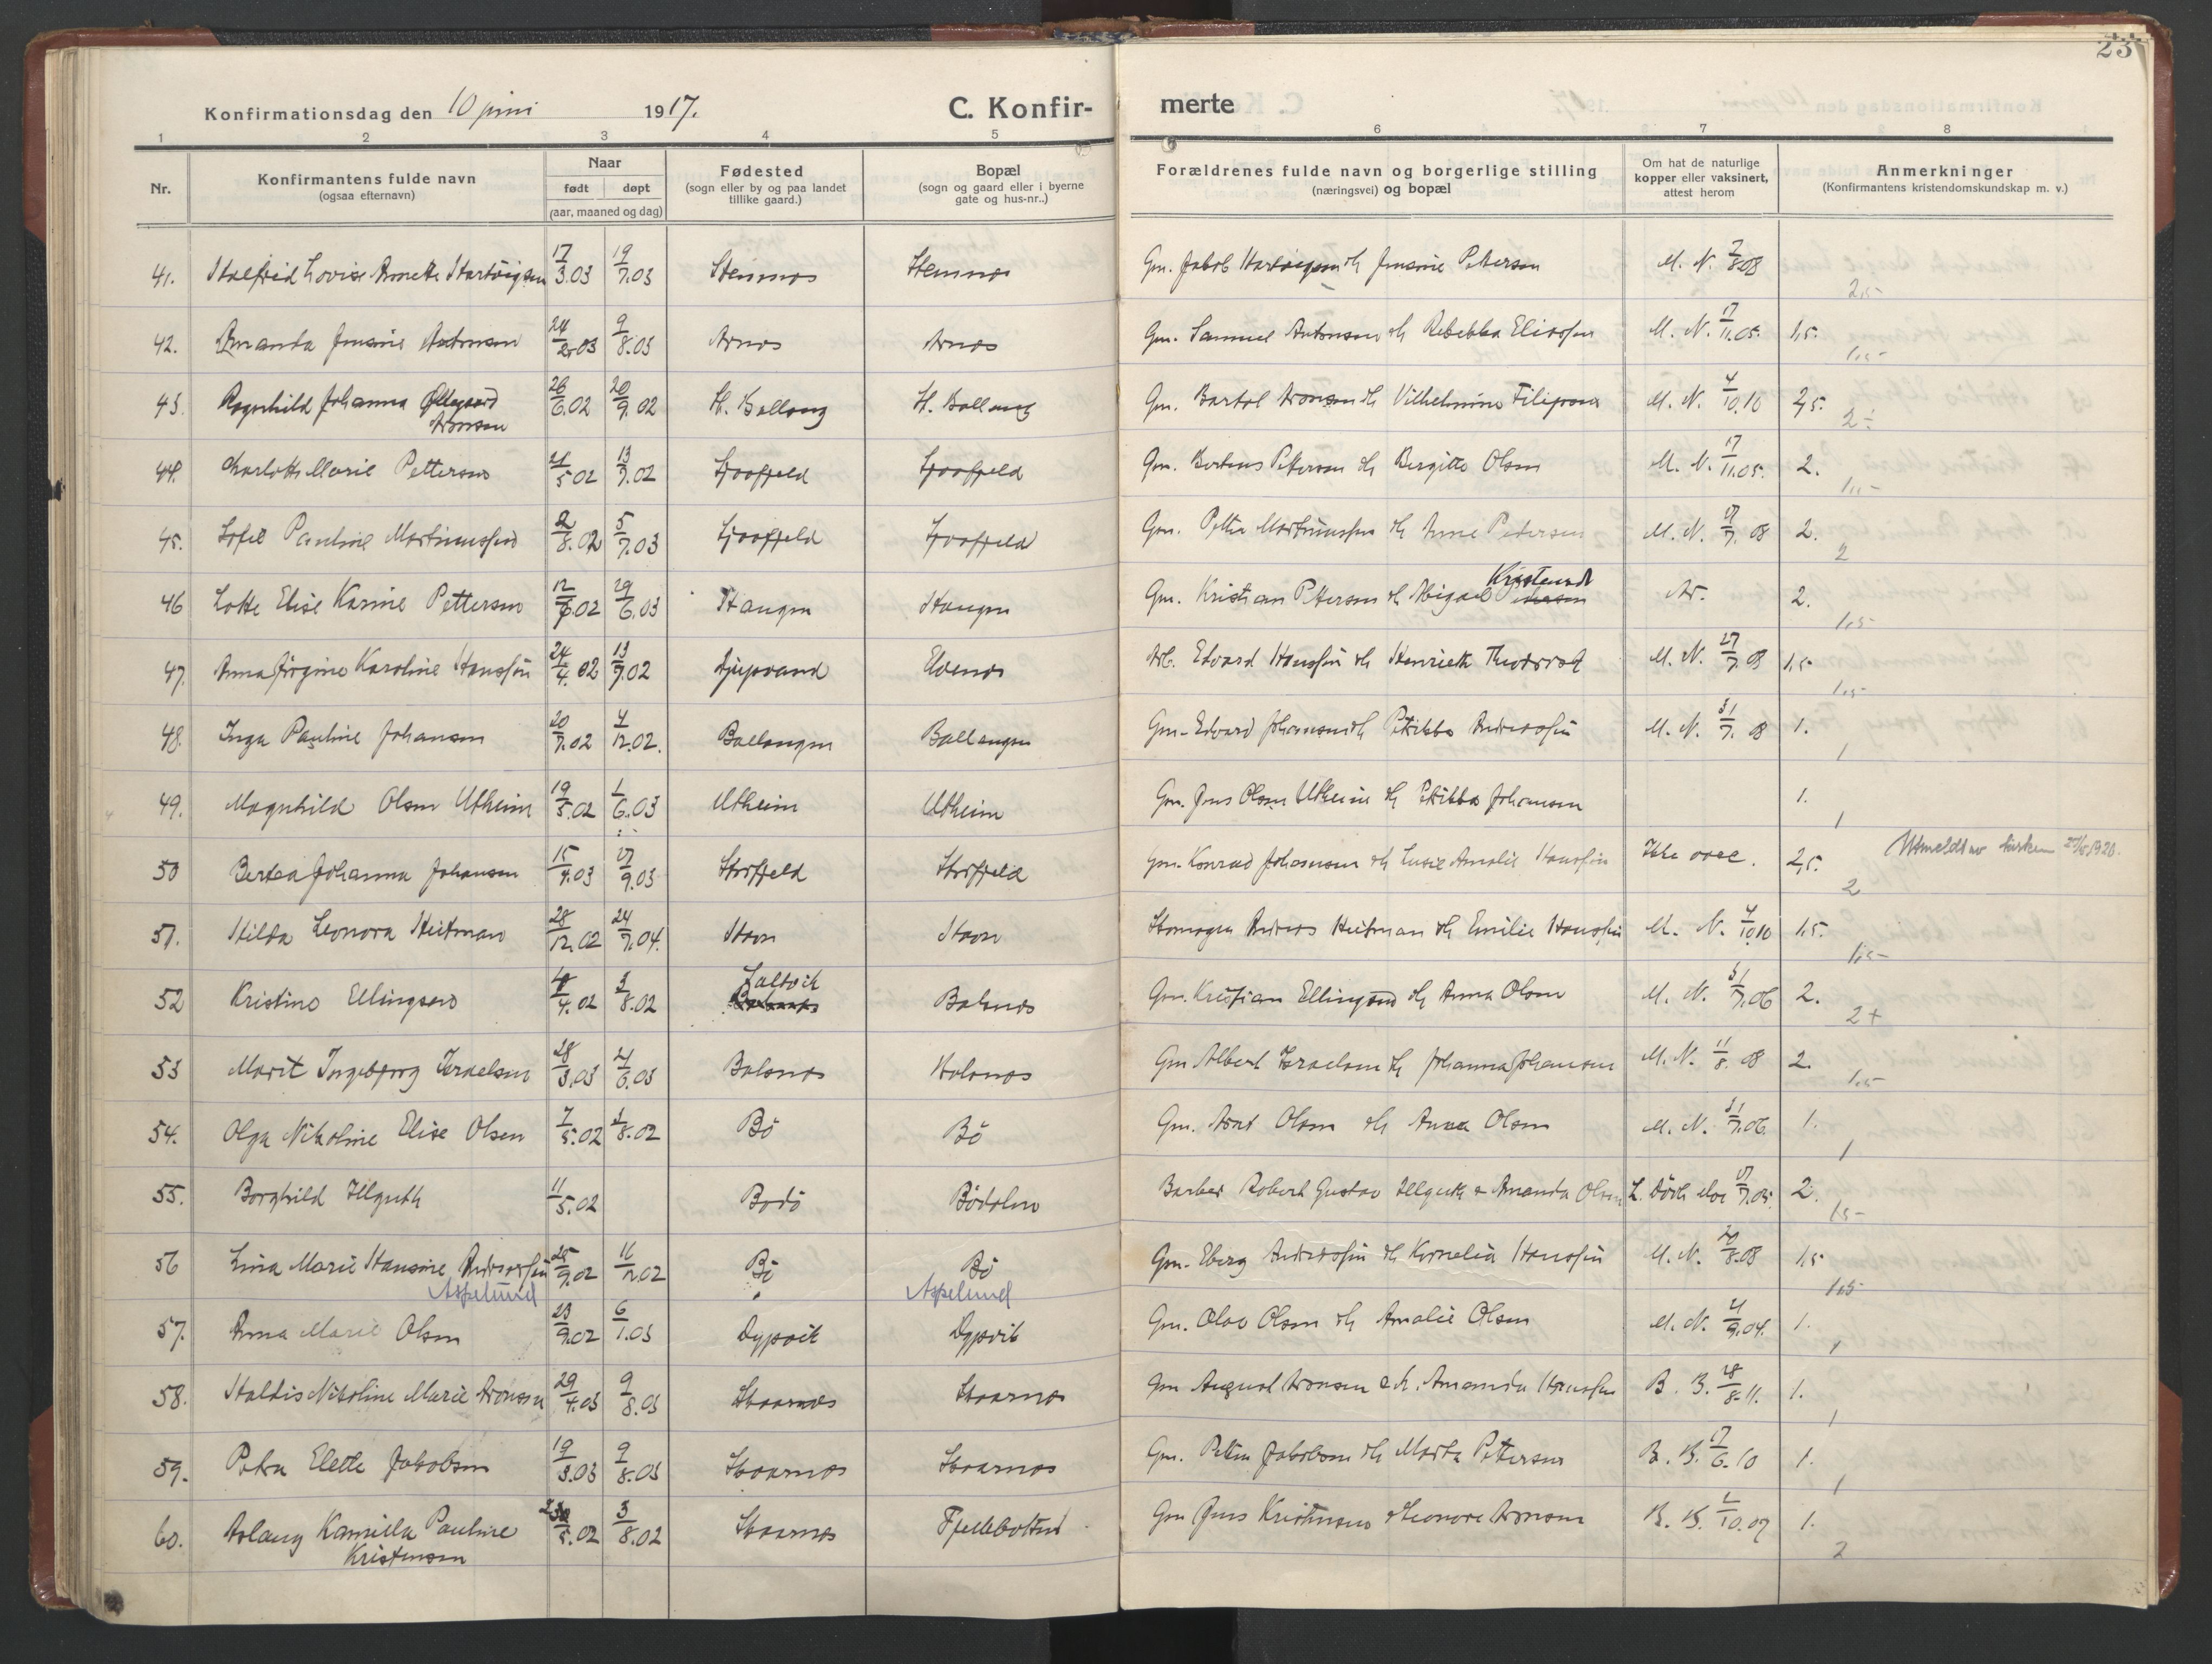 23
Konfirmationsdag den 10 juni 1917. C. Konfir- merte
1 2 3 4 5 6 7 8
Nr.
Konfirmantens fulde navn
(ogsaa efternavn)
Naar
født døpt
(aar, maaned og dag)
Fødested
(sogn eller by og paa landet
tillike gaard.)
Bopæl
(sogn og gaard eller i byerne
gate og hus-nr..)
Forældrenes fulde navn og borgerlige stilling
(næringsvei) og bopæl
Om hat de naturlige
kopper eller vaksinert,
attest herom
Anmerkninger
(Konfirmantens kristendomskundskap m. v.)
41. Lovise Annette Hartvigsen 17/3.03 19/7.03 Stemnes Stemnes Gm. Jakob Hartvigsen og Jensine Pettersen M. N. 7/8.08 2,5
42. Amanda Jensine Antonsen 24/2.03 9/8.03 Arnes Arnes Gm. Samuel Antonsen og Rebekka Eliassen M. N. 17/11.05. 1,5. 1,5
43. Ragnhild Johanna Ellegaard Aronsen 26/6.02 20/9.02 Gm. Bartol Aronsen og Vilhelmine M. N. 4/10.10 2,5. 2÷
44. Charlotte Marie Pettersen 21/5.02 13/7.02 Gm. Pettersen og Bergitte Olsen M. N. 17/11.05. 2.
45. Sofie Pauline Martinussen 2/8.02 5/7.03 Gm. Petter Martinussen og Anne Pedersen M. N. 27/7.08 2. 2
46 Lotte Elise Karine Pettersen 12/7.02 29/6.03 Haugen Haugen Gm. Kristian Pettersen og Abigael Kristensdt. 2. 1,5
47. Anna Jørgine Karoline Hanssen 24/4.02 13/7.02 Djupvand Elvenes Arb. Edvard Hanssen og Henriette M. N. 27/7.08 1,5 1,5
48. Inga Pauline Johansen 20/7.02 4/12.02. Ballangen Ballangen Gm. Edvard Johansen og Petrikka Andreassen M. N. 31/7.08 1. 1
49. Magnhild Olsen Utheim 19/5.02 1/6.03 Utheim Utheim Gm. Jens Olsen Utheim og Petrikka Johansen 1. 1
50 Bertea Johanna Johansen 15/4.03 27/9.03 Storfjeld Storfjeld Gm. Konrad Johansen og Lusie Amalie Hanssen Ikke vacc. 2,5. 2 Utmeldt av kirken 1920.
51. Hilda Leonora Heitman 28/12.02 24/7.04. Gm. Andreas Heitman og Emilie Hanssen M. N. 4/10.10 1,5. 1,5
52 Kristine Ellingsen 4/4.02 3/8.02 Saltvik Balsnes Gm. Kristian Ellingsen og Anna Olsen M. N. 31/7.06 2. 2+
53 Marit Ingebjørg Israelsen 28/3.03 21/6.03 Balsnes Balsnes Gm Albert Israelsen og Johanna Johansen M. N. 11/8.08 2. 1,5
54. Olga Nikoline Elise Olsen 7/5.02 3/8.02 Bö Bö Gm. Olsen og Anna Olsen M. N. 31/7.06. 1. 1
55. Borghild Illguth 11/5.02 Bodö Bödalen Barber Robert Gustav Illguth & Amanda Olsen 27/7.05. 2. 1,5
56 Lina Marie Hansine Andreassen 25/9.02 16/12.02 Bö Bö Gm. Eberg Andreassen og Kornelia Hanssen M. N. 20/8.08 1,5 1,5
Aspelund Aspelund
57. Anna Marie Olsen 23/9.02 6/1.03 Dypvik Dypvik Gm. Olav Olsen og Amalie Olsen M. N. 21/9.04. 1. 1
58. Haldis Nikoline Marie Aronsen 29/4.03 9/8.03 Skaarnes Skaarnes Gm August Aronsen og Amanda Hanssen B. B. 28/8.11. 1. 1
59. Petra Elette Jakobsen 19/3.03 9/8.03 Skaarnes Skaarnes Gm. Petter Jakobsen og Marta Pettersen B. B. 17/6.10 1. 1
60. Aslaug Kamilla Pauline Kristensen 23/5.02 3/8.02 Skaarnes Fjellebotten Gm Jens Kristensen og Leonore Aronsen B. B. 1/10.07 1. 2